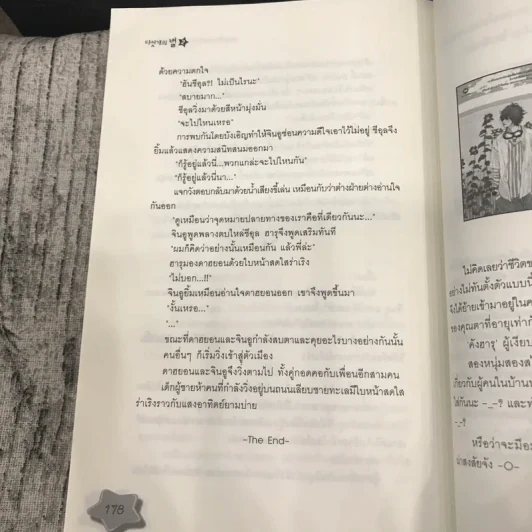 다섯개의 별 2
ด้วยความตกใจ
"ฮันซีอุล?! ไม่เป็นไรนะ"
"สบายมาก..."
ซีอุลวิ่งมาด้วยสีหน้ามุ่งมั่น
"จะไปไหนเหรอ"
การพบกันโดยบังเอิญทำให้จินอูซ่อนความดีใจเอาไว้ไม่อยู่ ซีอุลจึง
ยิ้มแล้วแสดงความสนิทสนมออกมา
"ก็รู้อยู่แล้วนี่...พวกแกล่ะจะไปไหนกัน"
"ก็รู้อยู่แล้วนี่นา..."
แจกวังตอบกลับมาด้วยน้ำเสียงขี้เล่น เหมือนกับว่าต่างฝ่ายต่างอ่านใจ
กันออก
"ดูเหมือนว่าจุดหมายปลายทางของเราคือที่เดียวกันนะ..."
จินอูพูดพลางตบไหล่ซีอุล ฮารุจึงพูดเสริมทันที
"ผมก็คิดว่าอย่างนั้นเหมือนกัน แล้วพี่ล่ะ"
ฮารุมองดาฮยอนด้วยใบหน้าสดใสร่าเริง
"ไม่บอก...!!"
จินอูยิ้มเหมือนอ่านใจดาฮยอนออก เขาจึงพูดขึ้นมา
"งั้นเหรอ..."
"..."
ขณะที่ดาฮยอนและจินอูกำลังสบตาและคุยอะไรบางอย่างกันนั้น
คนอื่นๆ ก็เริ่มวิ่งเข้าสู่ตัวเมือง
ดาฮยอนและจินอูจึงวิ่งตามไป ทั้งคู่กอดคอกับเพื่อนอีกสามคน
เด็กผู้ชายห้าคนที่กำลังวิ่งอยู่บนถนนเลียบชายทะเลมีใบหน้าสดใส
ร่าเริงราวกับแสงอาทิตย์ยามบ่าย
-The End-
178
ไม่คิดเลยว่าชีวิตข
อย่างไม่ทันตั้งตัวแบบนี้
จึงได้ย้ายเข้ามาอยู่ในค
ของคุณตาที่อายุเท่ากั
'คังฮารุ' ผู้เงียบ
สองหนุ่มสองส
เกี่ยวกับผู้คนในบ้าน
ใส่กันนะ -_-? และทำ
-_-?
หรือว่าจะมีอะ
น่าสงสัยจัง -O-